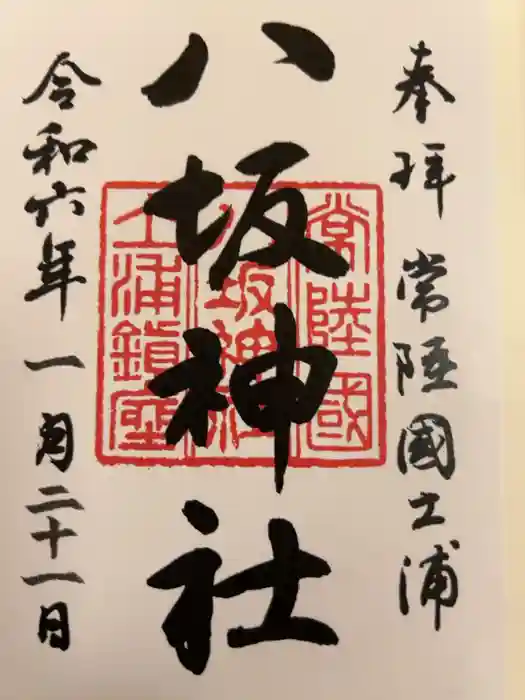 奉拝 常陸國土浦
常陸國
八坂神社
土浦鎮座
八坂神社
令和六年一月二十一日